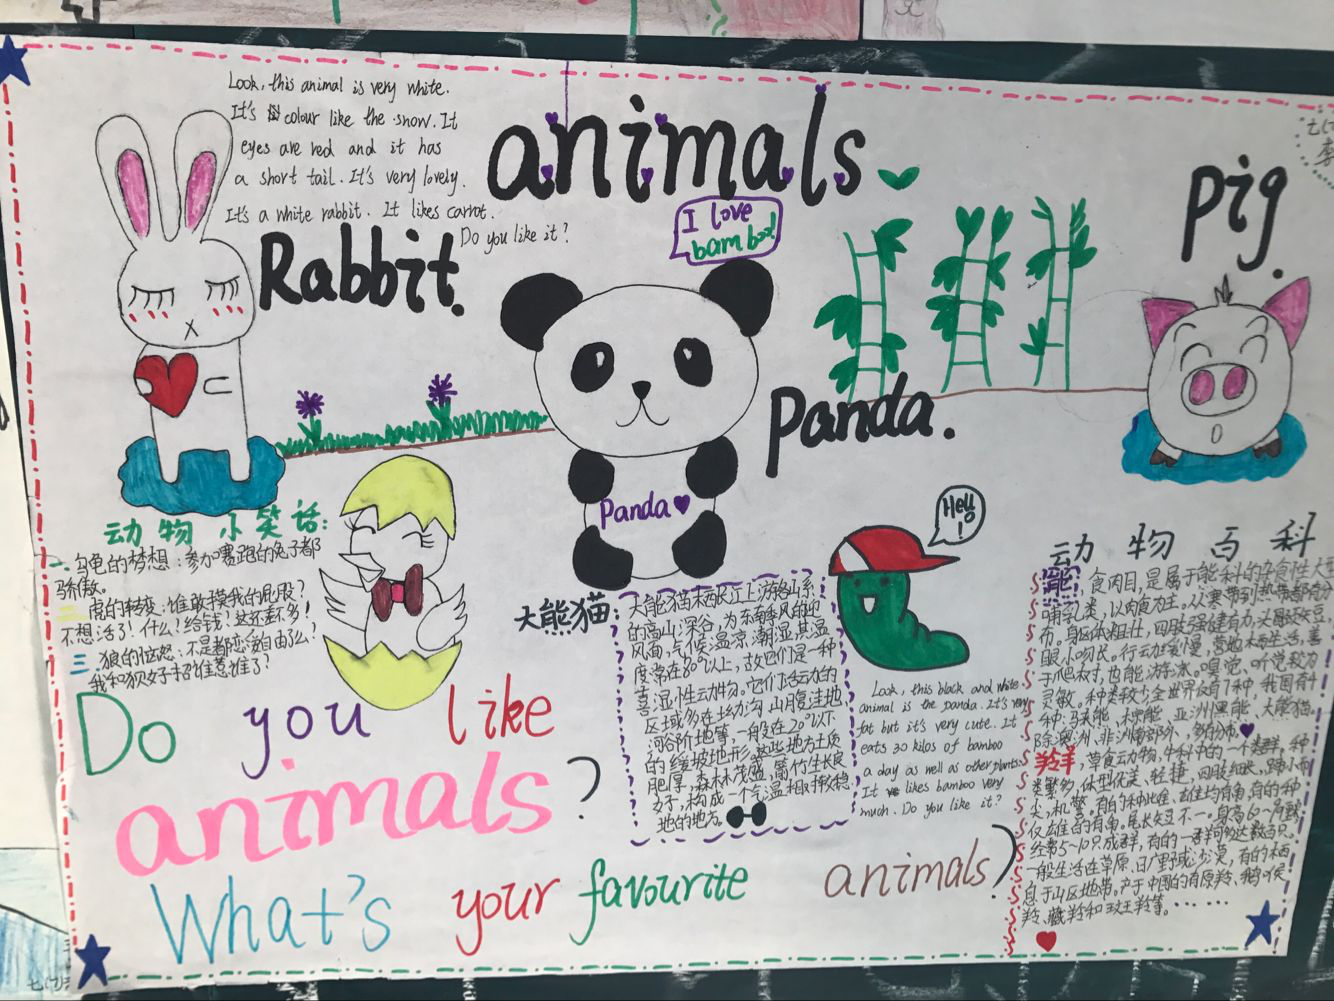 Look, this animal is very white.
It's colour like the snow. It
eyes are red and it has
a short tail. It's very lovely.
It's a white rabbit. It likes carrot.
Do you like it?
Rabbit.
animals
I love
bamboo!
Pig.
Panda.
Panda
Hello
!
动物小笑话:
一. 乌龟的梦想:参加赛跑的兔子都
骄傲。
二. 虎的转变:谁敢摸我的屁股?
不想活了!什么!给钱!这还差不多!
三. 狼的愤怒:不是都恋爱自由了么?
我和狈好招谁惹谁了?
大熊猫
大熊猫栖长江上游各山系
的高山深谷,为东南季风的迎
风面,气候温凉潮湿,其湿
度常在80%以上,故它们是一种
喜湿性动物。它们活动的
区域多在坳沟、山腹洼地、
河谷阶地等,一般在20°以下
的缓坡地形。这些地方土质
肥厚,森林茂盛,箭竹生长良
好,构成一个气温相对较稳
地的地方。
Look, this black and white
animal is the panda. It's very
fat but it's very cute. It
eats 30 kilos of bamboo
a day as well as other plants.
It likes bamboo very
much. Do you like it?
动物百科
熊,食肉目,是属于熊科的杂食性大型
哺乳类,以肉食为主。从寒带到热带都有分
布。身躯体粗壮,四肢强健有力,头圆颈短,
眼小吻长。行动缓慢,营地栖生活,善
于爬树,也能游泳。嗅觉、听觉较为
灵敏。种类较少,全世界仅有7种,我国有4
种:马来熊、棕熊、亚洲黑熊、大熊猫。
除澳洲、非洲南部外,多的分布。
羚羊,草食动物,牛科中的一个类群。种
类繁多,体型优美、轻捷,四肢细长,蹄小而
尖,机警,有的种雌、雄均有角,有的种
仅雄的有角。尾长短不一。身高60~90厘
经常5~10只成群,有的一群可多达数百只。
一般生活在草原、旷野或沙漠,有的栖
息于山区地带。产于中国的有原羚、鹅喉
羚、藏羚和斑羚等。......
Do you like
animals?
What's your favourite animals?
七(7)